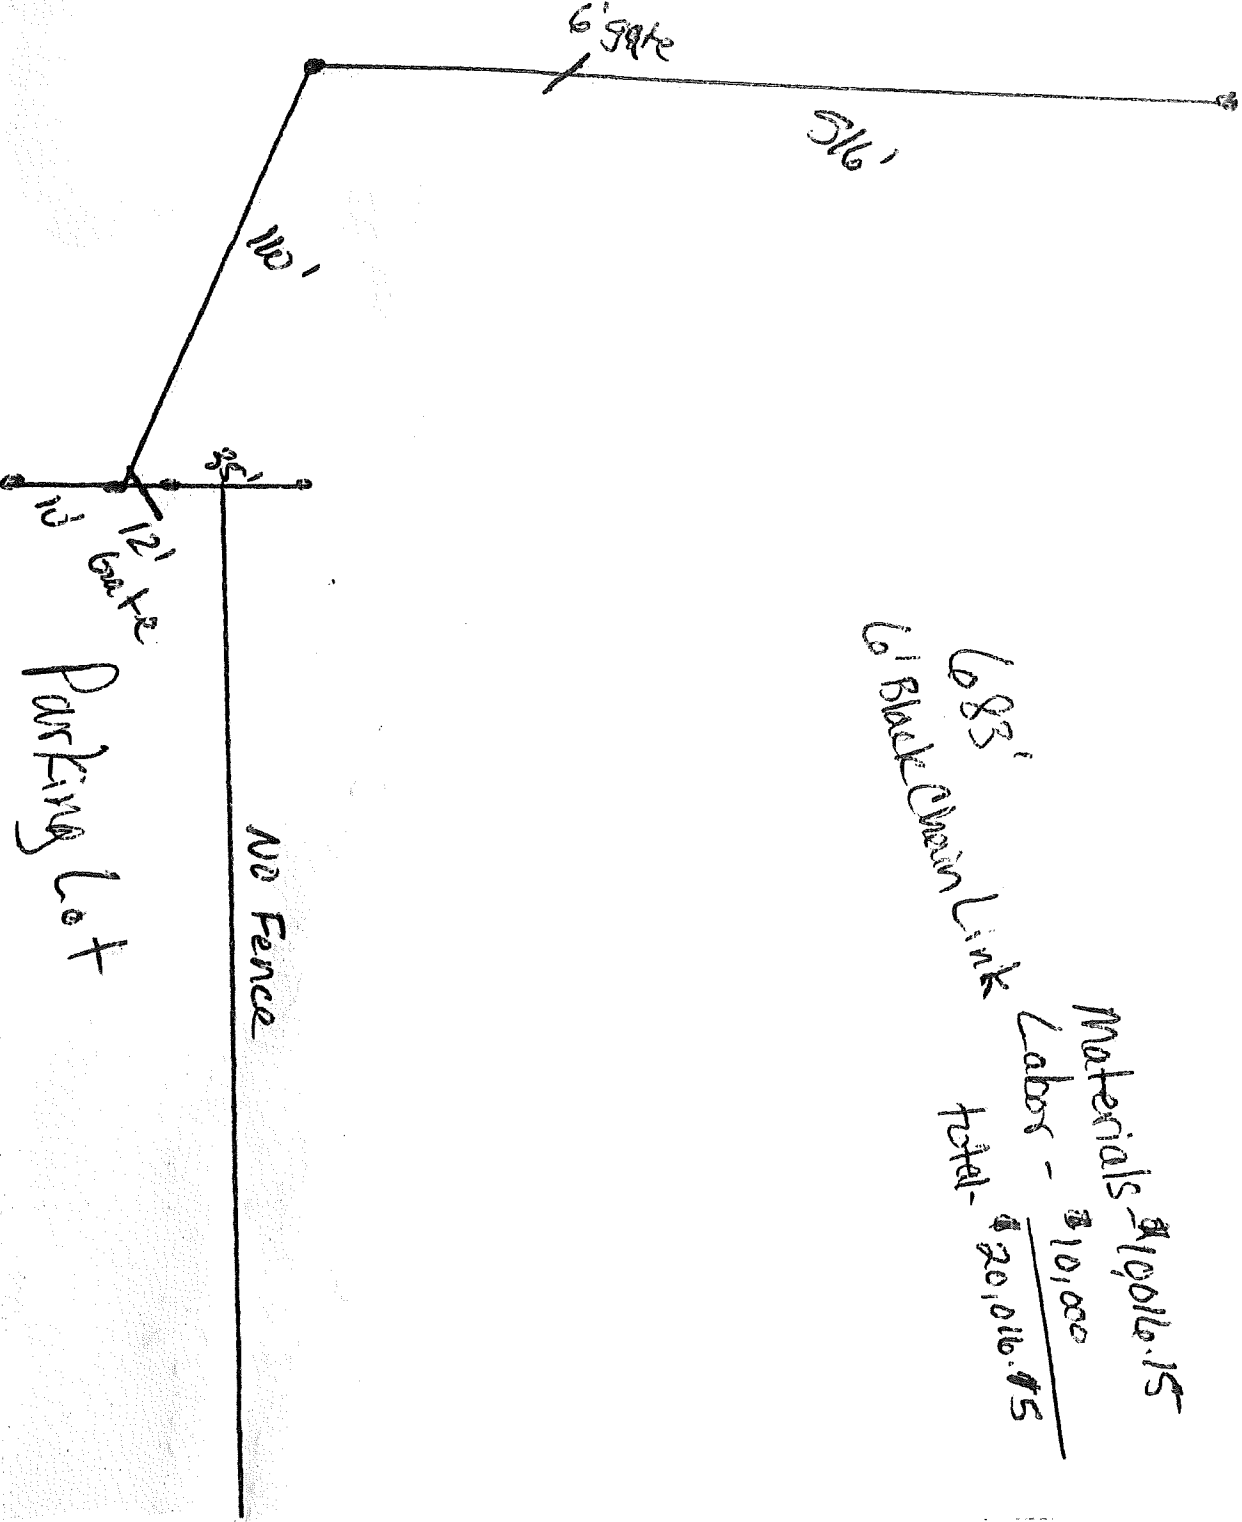 6' gate
516'
110'
35'
10'
12'
Gate
Parking Lot
No Fence
683'
6' Black Chain Link
Materials - $10,016.15
Labor - $10,000
total - $20,016.15